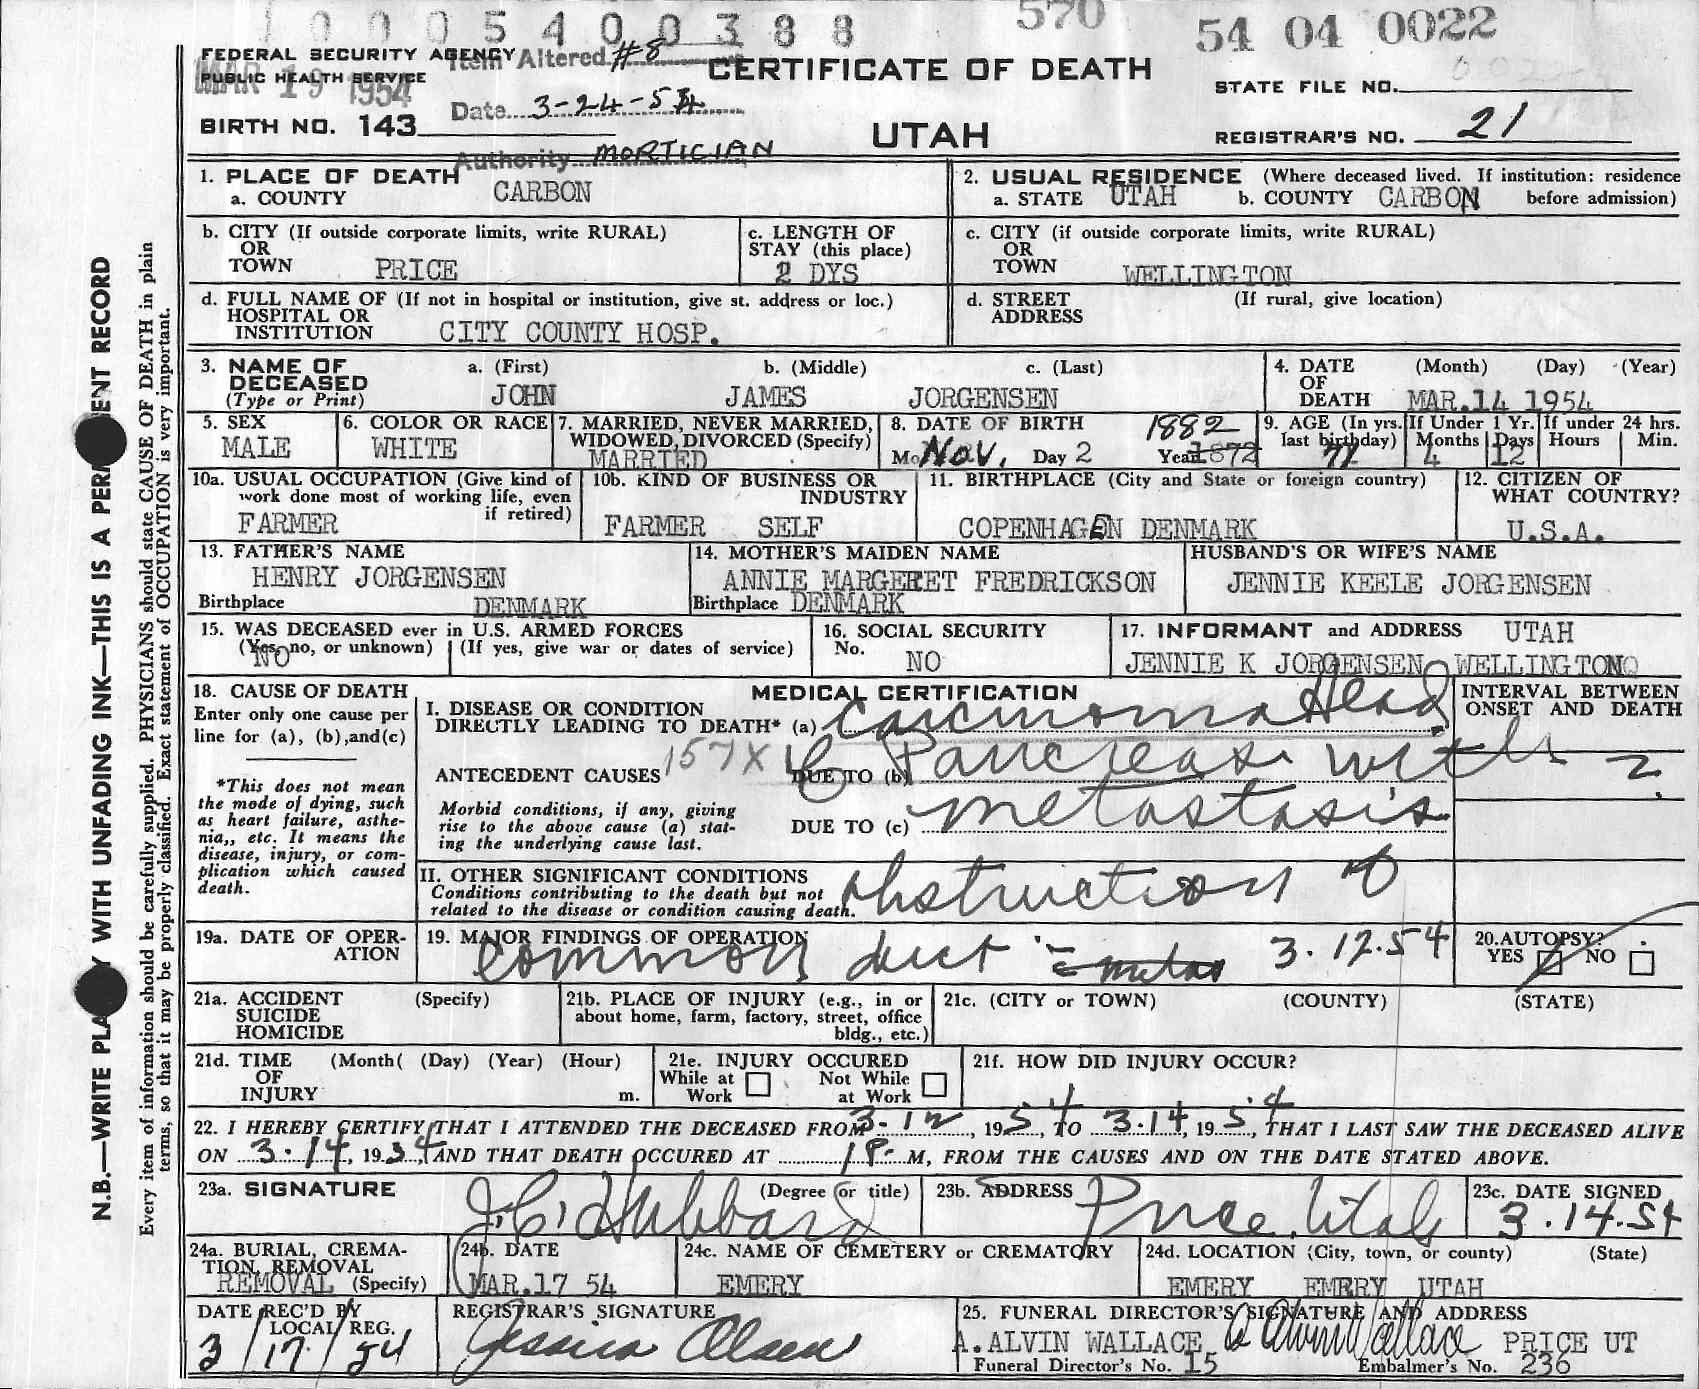 1 0 0 0 5 4 0 0 3 8 8 570 54 04 0022
FEDERAL SECURITY AGENCY Item Altered #8
PUBLIC HEALTH SERVICE
MAR 19 1954
CERTIFICATE OF DEATH
STATE FILE NO.
Date 3-24-54
BIRTH NO. 143
UTAH
REGISTRAR'S NO. 21
Authority MORTICIAN
1. PLACE OF DEATH
a. COUNTY CARBON
2. USUAL RESIDENCE (Where deceased lived. If institution: residence
a. STATE UTAH b. COUNTY CARBON before admission)
b. CITY (If outside corporate limits, write RURAL)
OR
TOWN PRICE
c. LENGTH OF
STAY (this place)
2 DYS
c. CITY (if outside corporate limits, write RURAL)
OR
TOWN WELLINGTON
d. FULL NAME OF (If not in hospital or institution, give st. address or loc.)
HOSPITAL OR
INSTITUTION CITY COUNTY HOSP.
d. STREET (If rural, give location)
ADDRESS
3. NAME OF
DECEASED
(Type or Print)
a. (First) b. (Middle) c. (Last)
JOHN JAMES JORGENSEN
4. DATE (Month) (Day) (Year)
OF
DEATH MAR.14 1954
5. SEX
MALE
6. COLOR OR RACE
WHITE
7. MARRIED, NEVER MARRIED,
WIDOWED, DIVORCED (Specify)
MARRIED
8. DATE OF BIRTH 1882
Mo Nov. Day 2 Year 1872
9. AGE (In yrs.
last birthday)
If Under 1 Yr.
Months Days
4 12
If under 24 hrs.
Hours Min.
10a. USUAL OCCUPATION (Give kind of
work done most of working life, even
if retired)
FARMER
10b. KIND OF BUSINESS OR
INDUSTRY
FARMER SELF
11. BIRTHPLACE (City and State or foreign country)
COPENHAGEN DENMARK
12. CITIZEN OF
WHAT COUNTRY?
U.S.A.
13. FATHER'S NAME
HENRY JORGENSEN
Birthplace DENMARK
14. MOTHER'S MAIDEN NAME
ANNIE MARGERET FREDRICKSON
Birthplace DENMARK
HUSBAND'S OR WIFE'S NAME
JENNIE KEELE JORGENSEN
15. WAS DECEASED ever in U.S. ARMED FORCES
(Yes, no, or unknown) (If yes, give war or dates of service)
NO
16. SOCIAL SECURITY
No.
NO
17. INFORMANT and ADDRESS UTAH
JENNIE K JORGENSEN WELLINGTON
18. CAUSE OF DEATH
Enter only one cause per
line for (a), (b), and (c)
*This does not mean
the mode of dying, such
as heart failure, asthe-
nia,, etc. It means the
disease, injury, or com-
plication which caused
death.
MEDICAL CERTIFICATION
I. DISEASE OR CONDITION
DIRECTLY LEADING TO DEATH* (a) Carcinoma Head
ANTECEDENT CAUSES 157X
DUE TO (b) Pancreas with
Morbid conditions, if any, giving
rise to the above cause (a) stat-
ing the underlying cause last.
DUE TO (c) metastasis
INTERVAL BETWEEN
ONSET AND DEATH
2
II. OTHER SIGNIFICANT CONDITIONS
Conditions contributing to the death but not
related to the disease or condition causing death.
Obstruction of
19a. DATE OF OPER-
ATION
19. MAJOR FINDINGS OF OPERATION
common duct 3.12.54
20. AUTOPSY?
YES NO
21a. ACCIDENT (Specify)
SUICIDE
HOMICIDE
21b. PLACE OF INJURY (e.g., in or
about home, farm, factory, street, office
bldg., etc.)
21c. (CITY or TOWN) (COUNTY) (STATE)
21d. TIME (Month( (Day) (Year) (Hour)
OF
INJURY m.
21e. INJURY OCCURED
While at Work
Not While at Work
21f. HOW DID INJURY OCCUR?
22. I HEREBY CERTIFY THAT I ATTENDED THE DECEASED FROM 3-12, 1954, TO 3.14, 1954, THAT I LAST SAW THE DECEASED ALIVE
ON 3.14, 1954 AND THAT DEATH OCCURED AT 1 P. M, FROM THE CAUSES AND ON THE DATE STATED ABOVE.
23a. SIGNATURE (Degree or title)
J.C. Hubbard
23b. ADDRESS
Price, Utah
23c. DATE SIGNED
3.14.54
24a. BURIAL, CREMA-
TION, REMOVAL
REMOVAL (Specify)
24b. DATE
MAR.17 54
24c. NAME OF CEMETERY or CREMATORY
EMERY
24d. LOCATION (City, town, or county) (State)
EMERY EMERY UTAH
DATE REC'D BY
LOCAL REG.
3/17/54
REGISTRAR'S SIGNATURE
Jessica Olsen
25. FUNERAL DIRECTOR'S SIGNATURE AND ADDRESS
A. ALVIN WALLACE A Alvin Wallace PRICE UT
Funeral Director's No. 15 Embalmer's No. 236
N.B.—WRITE PLA Y WITH UNFADING INK—THIS IS A PERM ENT RECORD
Every item of information should be carefully supplied. PHYSICIANS should state CAUSE OF DEATH in plain
terms, so that it may be properly classified. Exact statement of OCCUPATION is very important.